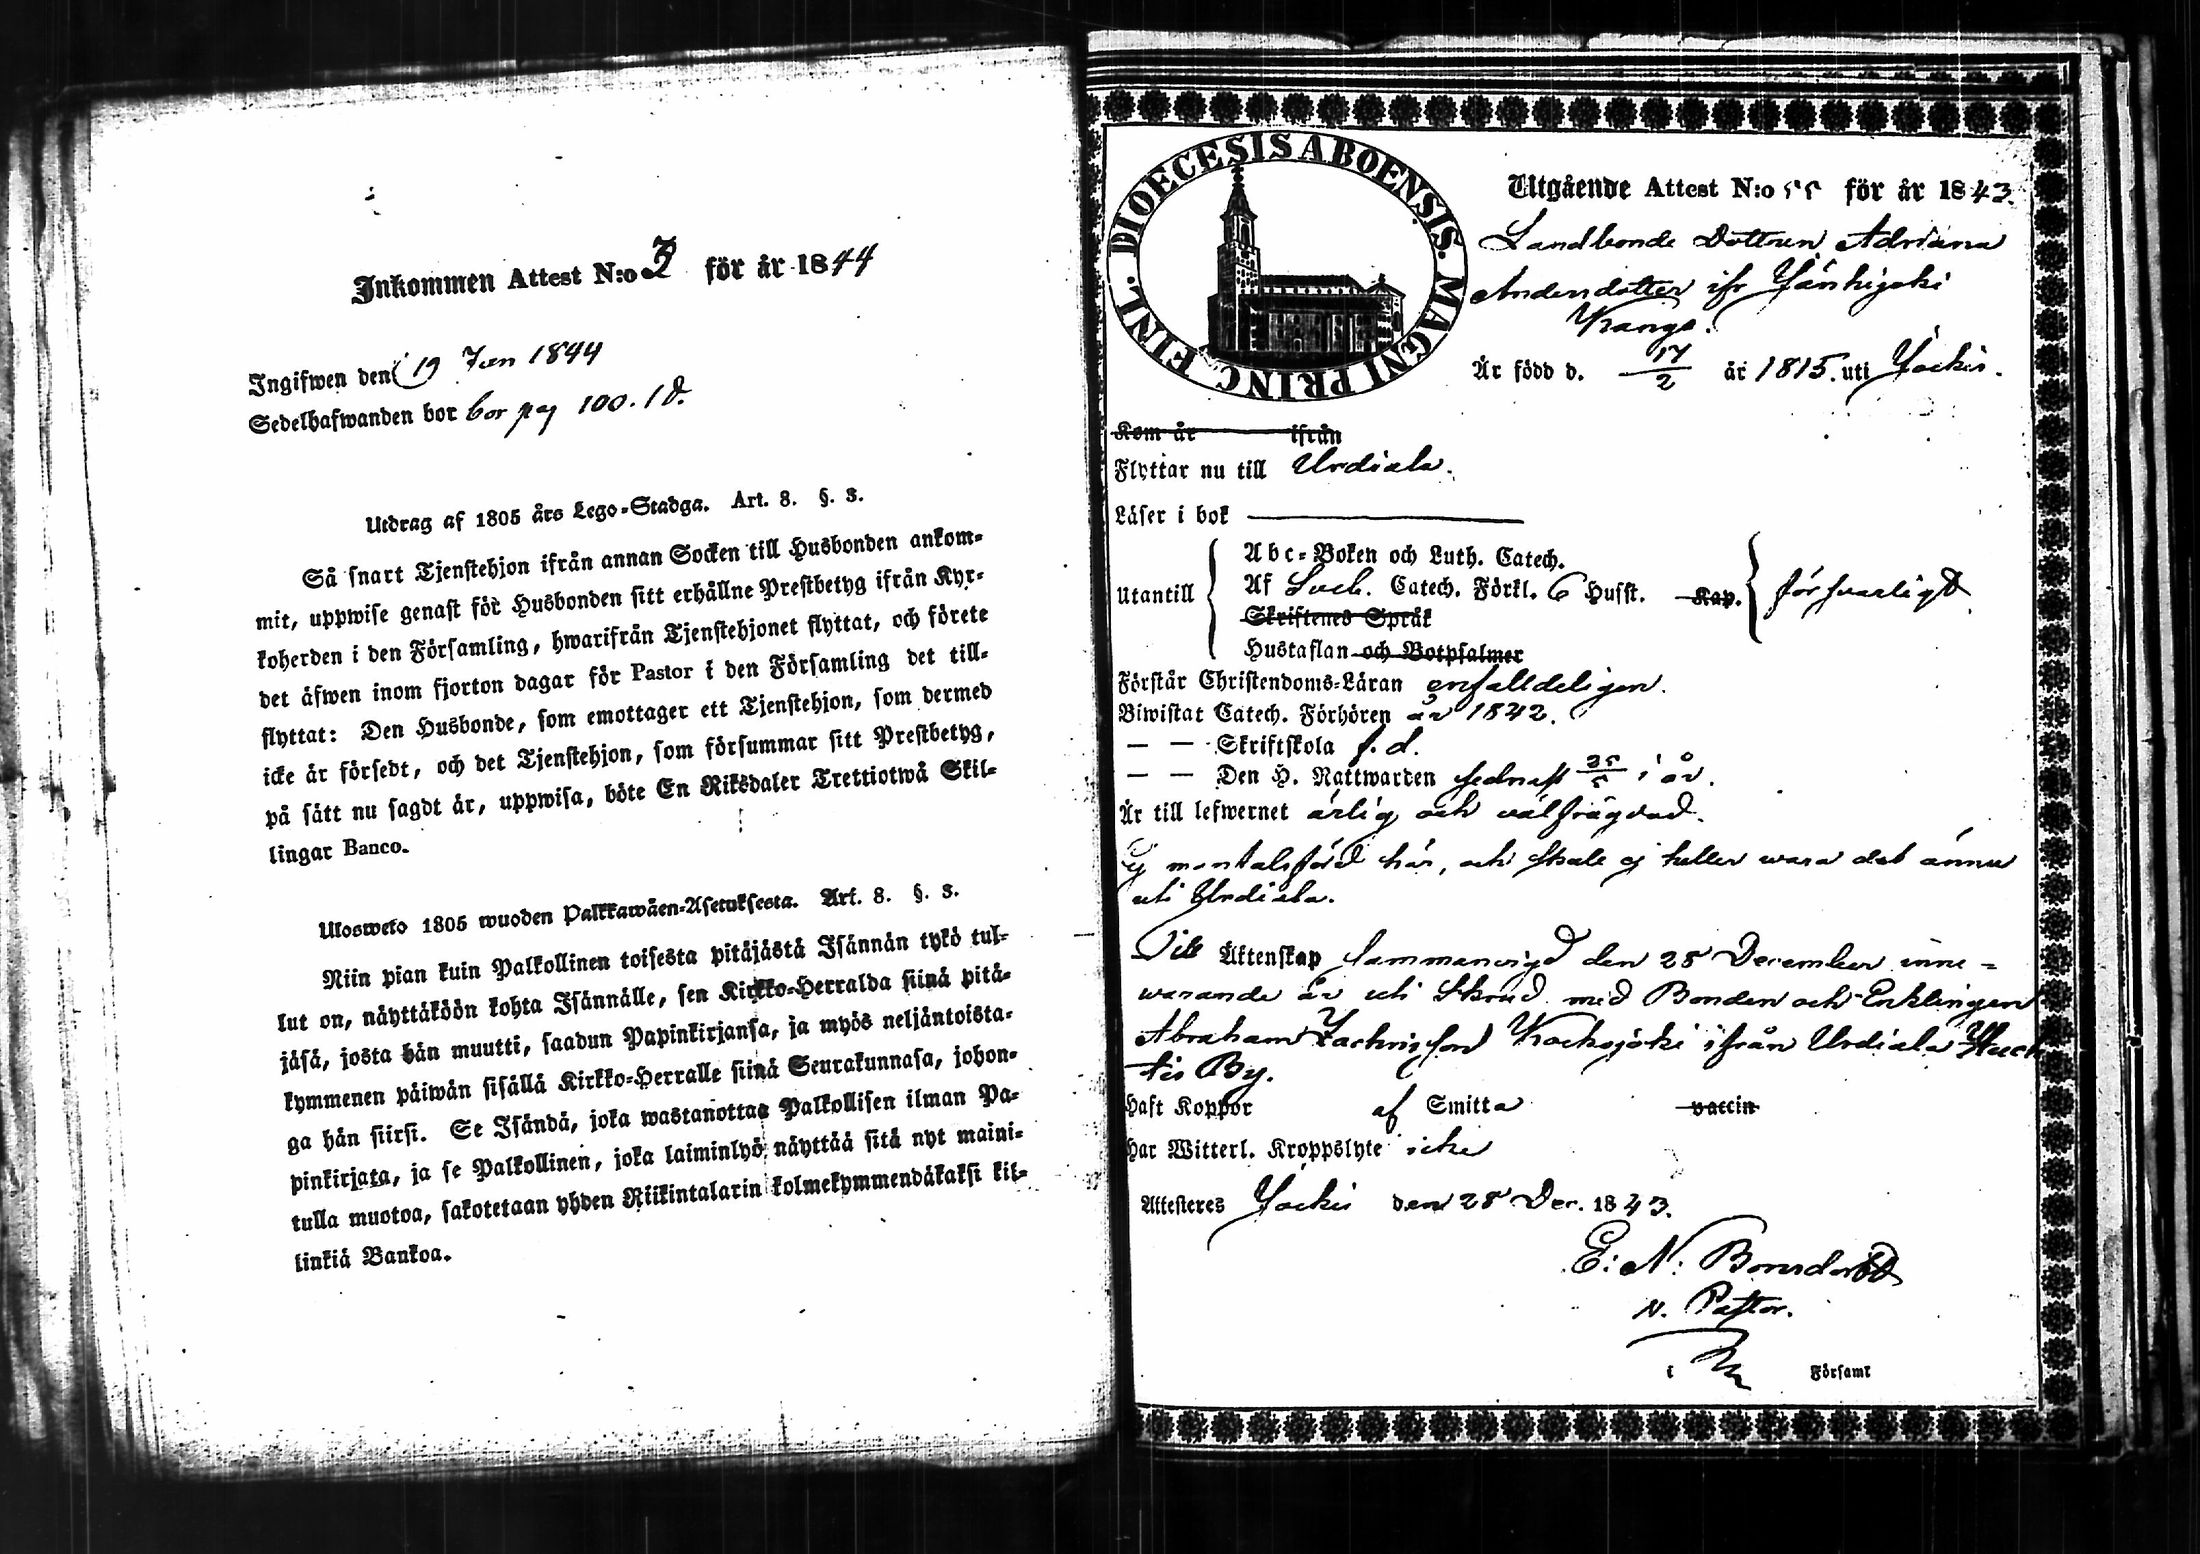 Inkommen Attest N:o 3 för år 1844
Ingifwen den 19 Jan 1844
Sedelhafwanden bor bor pag 100. 1 d.
Utdrag af 1805 års Lego-Stadga. Art. 8. §. 3.
Så snart Tjenstehjon ifrån annan Socken till Husbonden ankom-
mit, uppwise genast för Husbonden sitt erhållne Prestbetyg ifrån Kyr-
koherden i den Församling, hwarifrån Tjenstehjonet flyttat, och förete
det äfwen inom fjorton dagar för Pastor i den Församling det till-
flyttat: Den Husbonde, som emottager ett Tjenstehjon, som dermed
icke är försedt, och det Tjenstehjon, som försummar sitt Prestbetyg,
på sätt nu sagdt är, uppwisa, böte En Riksdaler Trettiotwå Skil-
lingar Banco.
Ulosweto 1805 wuoden Palkkawäen-Asetuksesta. Art. 8. §. 3.
Niin pian kuin Palkollinen toisesta pitäjästä Isännän tykö tul-
lut on, näyttäköön kohta Isännälle, sen Kirkko-Herralda siinä pitä-
jäsä, josta hän muutti, saadun Papinkirjansa, ja myös neljäntoista-
kymmenen päiwän sisällä Kirkko-Herralle siinä Seurakunnasa, johon-
ga hän siirsi. Se Isändä, joka wastanottaa Palkollisen ilman Pa-
pinkirjata, ja se Palkollinen, joka laiminlyö näyttää sitä nyt maini-
tulla muotoa, sakotetaan yhden Riikintalarin kolmekymmendäkaksi kil-
linkiä Bankoa.
DIOECESIS ABOENSIS. MAGNI PRINC. FINL.
Utgående Attest N:o 55 för år 1843.
Landbonde Dottren Adriana
Andersdotter ifr Jänhijoki
Krangs.
Är född d. 17/2 år 1815. uti Jockis.
Kom år ifrån
Flyttar nu till Urdiala.
Läser i bok
Abc-Boken och Luth. Catech.
Utantill Af Sveb. Catech. Förkl. 6 Husst. Kap. försvarligt
Skriftenes Språk
Hustaflan och Botpsalmer
Förstår Christendoms-Läran enfalldeligen.
Biwistat Catech. Förhören år 1842.
— — Skriftskola f. d.
— — Den H. Nattwarden sednast 25/5 i år.
Är till lefwernet ärlig och välfrägdad.
Ej mantalsförd här, och skale ej heller wara det ännu
uti Urdiala.
Till Äktenskap sammanvigd den 28 December inne-
warande år uti Skrud med Bonden och Enklingen
Abraham Zachrisson Kocksjoki ifrån Urdiala
tis By.
Haft Koppor af Smitta vaccin
Har Witterl. Kroppslyte icke
Attesteres Jockis den 28 Dec. 1843.
E: N: Bonsdorff
v. Pastor.
i Församl